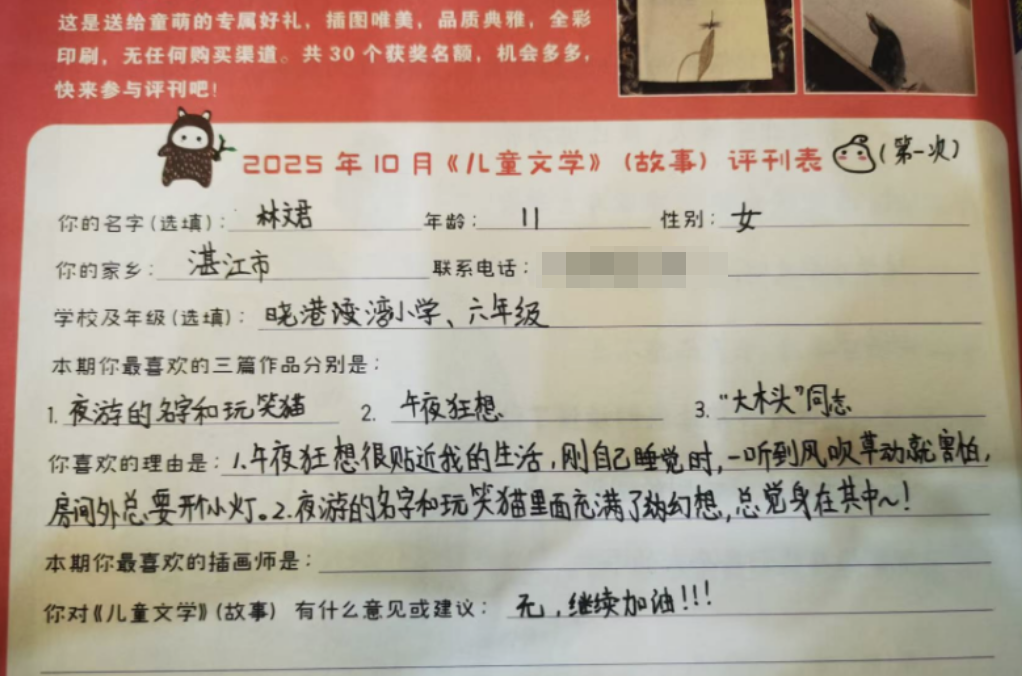 这是送给童萌的专属好礼，插图唯美，品质典雅，全彩
印刷，无任何购买渠道。共30个获奖名额，机会多多，
快来参与评刊吧！
2025年10月《儿童文学》（故事）评刊表 （第一次）
你的名字（选填）：林文君 年龄：11 性别：女
你的家乡：湛江市 联系电话：
学校及年级（选填）：晓港湾小学、六年级
本期你最喜欢的三篇作品分别是：
1.夜游的名字和玩笑猫 2.午夜狂想 3.“大木头”同志
你喜欢的理由是：1.午夜狂想很贴近我的生活，刚自己睡觉时，一听到风吹草动就害怕，
房间外总要开个小灯。2.夜游的名字和玩笑猫里面充满了幻想，总觉身在其中~！
本期你最喜欢的插画师是：
你对《儿童文学》（故事）有什么意见或建议：无，继续加油！！！